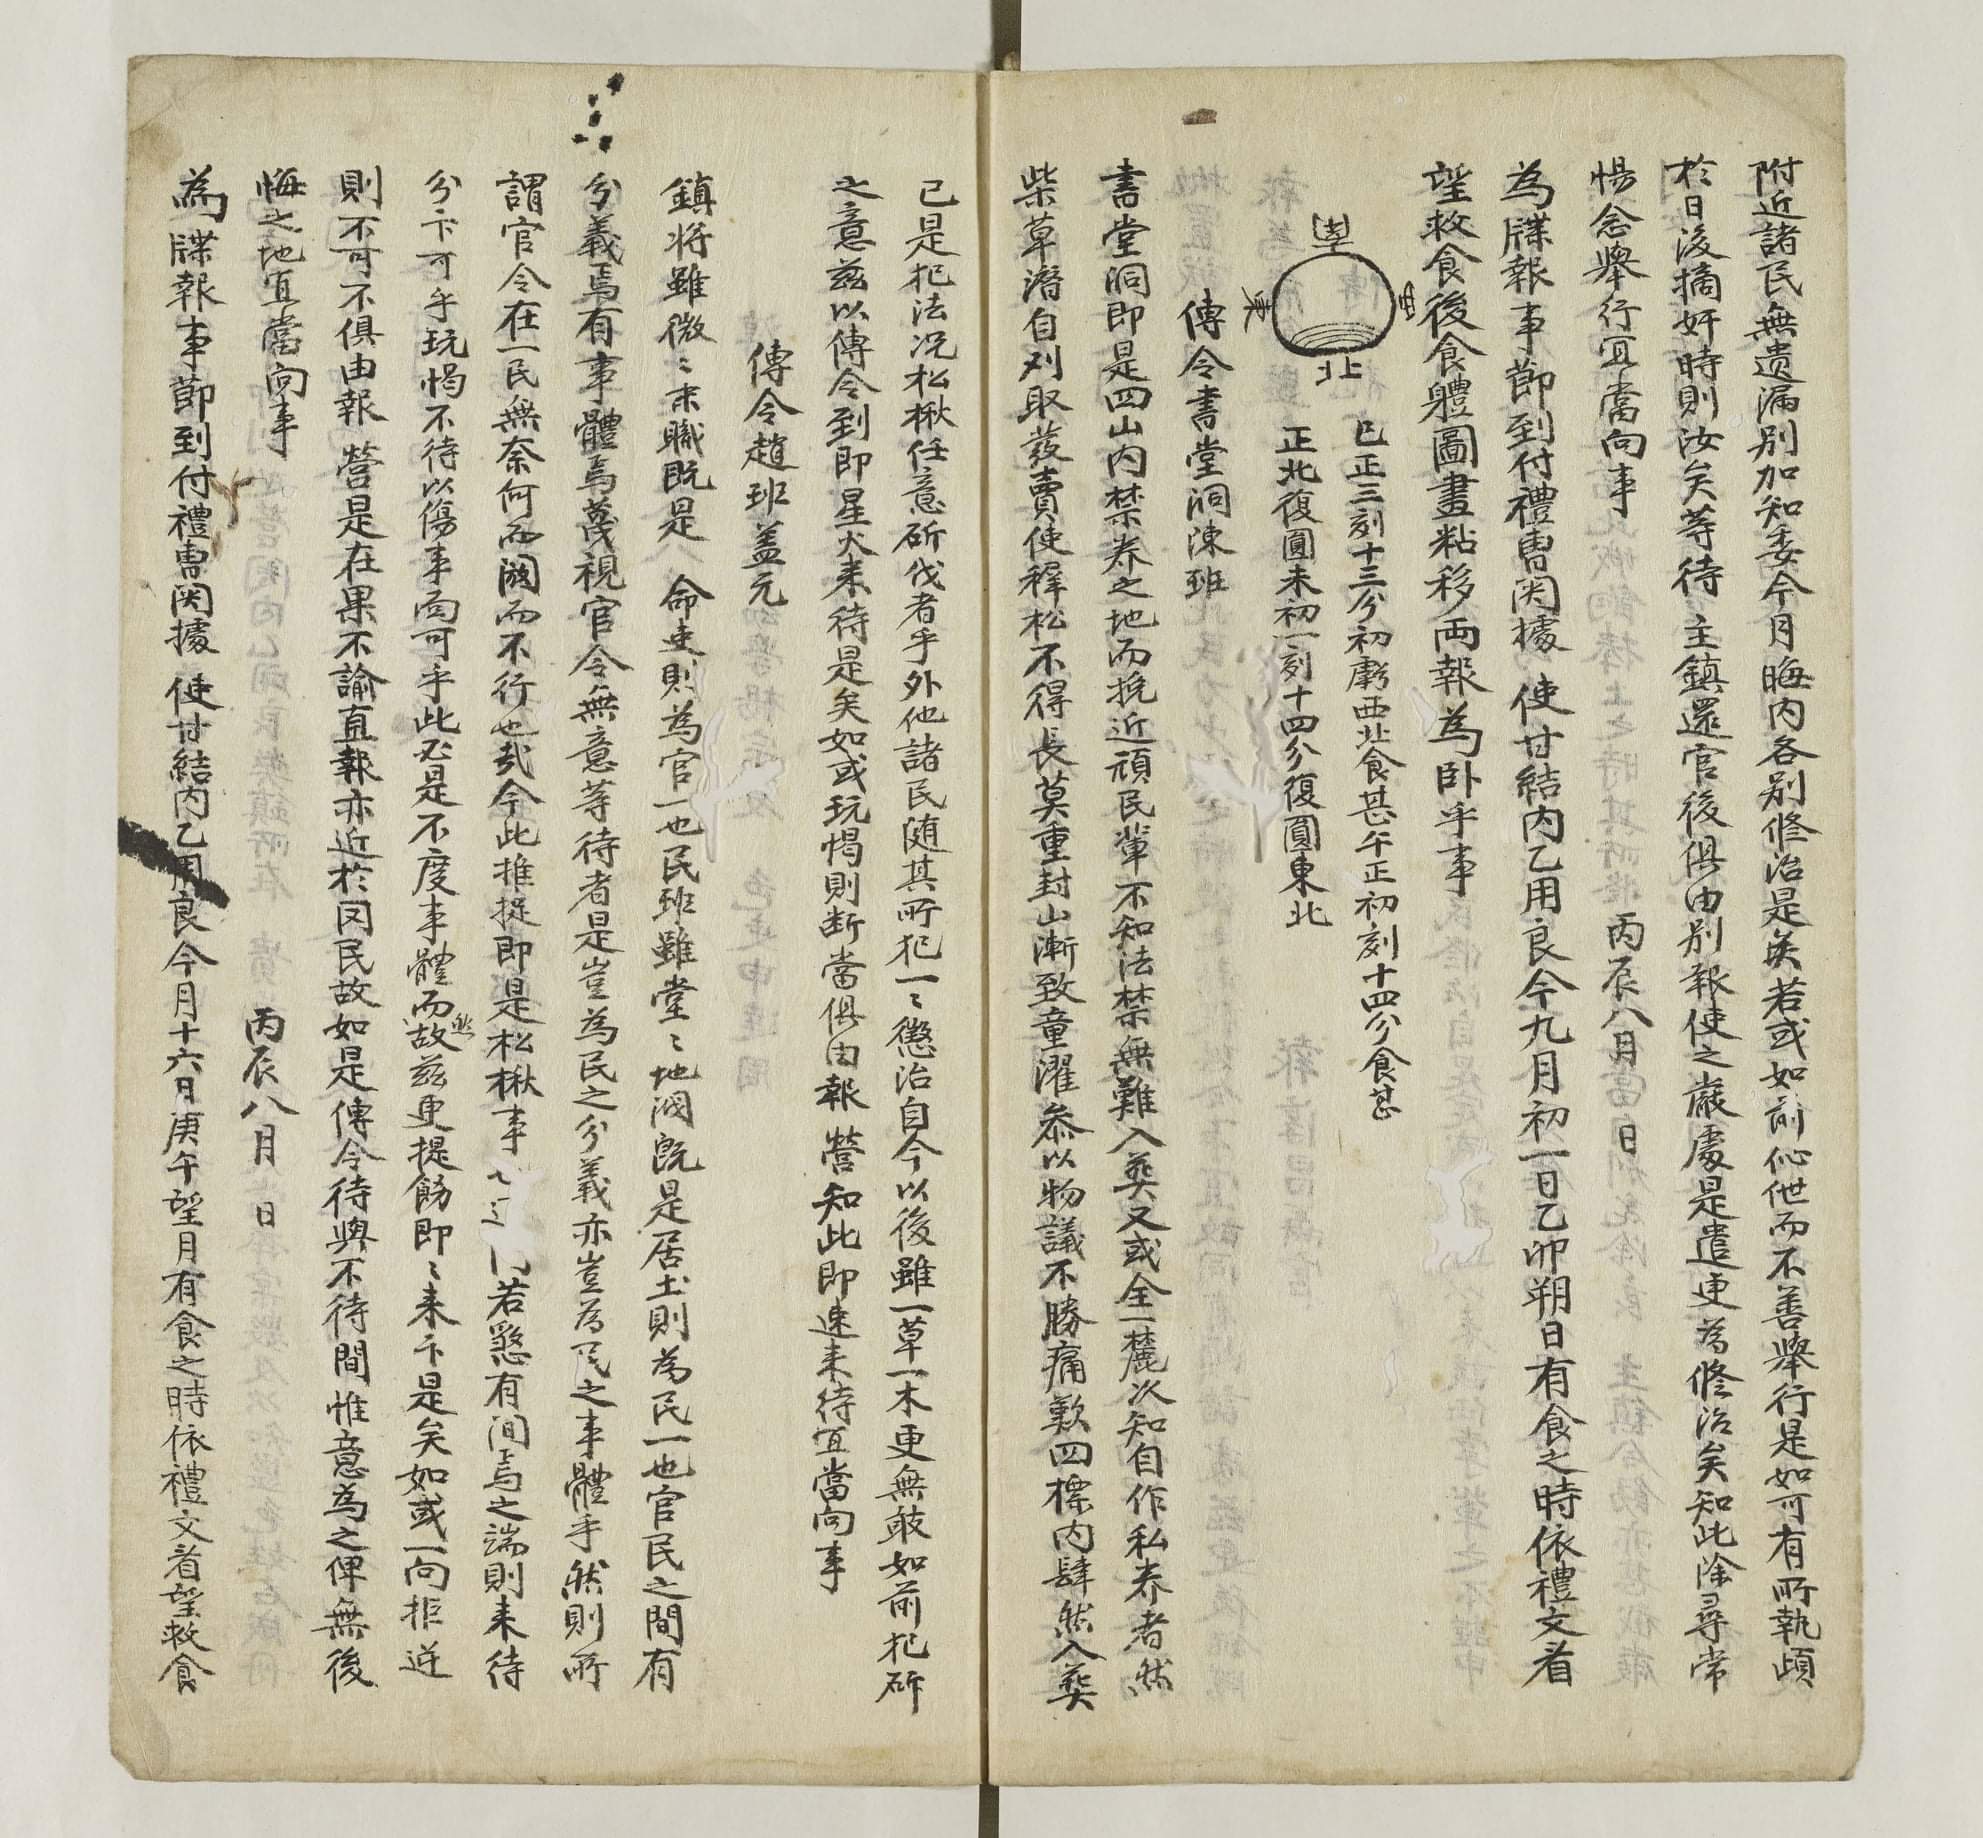 附近諸民無遺漏別加知委今月晦内各別修治是矣若或如前似他而不善擧行是如可有所執頉
於日後摘奸時則汝矣等待 主鎭還官後俱由別報使之嚴處是遣更爲修治矣知此除尋常
惕念擧行宜當向事 丙辰八月 日
爲牒報事節到付禮曺関據 使甘結内乙用良今九月初一日乙卯朔日有食之時依禮文看
望救食後食軆圖畫粘移両報爲卧乎事
南
西
東
北
巳正三刻十三分初虧西北食甚午正初刻十四分食甚
正北復圓未初一刻十四分復圓東北
傳令書堂洞涑班
書堂洞即是四山内禁养之地而挽近頑民輩不知法禁無難入葬又或全一麓次知自作私养者然
柴草潛自刈取茇賣使穉松不得長莫重封山漸致童濯叅以物議不勝痛歎四標内肆然入葬
已是犯法况松楸任意斫伐者乎外他諸民随其所犯一〻懲治自今以後雖一草一木更無敢如前犯斫
之意玆以傳令到即星火来待是矣如或玩愒則断當俱由報 營知此即速来待宜當向事
傳令趙班盖元
鎮将雖微〻末職既是 命吏則為官一也民班雖堂〻地閥既是居土則為民一也官民之間有
分義焉有事體焉蔑視官令無意等待者是豈為民之分義亦豈為民之事體乎然則所
謂官令在一民無奈何而閼而不行也哉今此推捉即是松楸事 若愆有間焉之端則来待
分卞可乎玩愒不待以傷事面可乎此必是不度事體而然故玆更提飭即〻来卞是矣如或一向拒逆
則不可不俱由報 營是在果不諭直報亦近於罔民故如是傳令待與不待間惟意為之俾無後
悔之地宜當向事 丙辰八月 日
為牒報事節到付禮曺関據 使甘結内乙用良今月十六月庚午望月有食之時依禮文看望救食